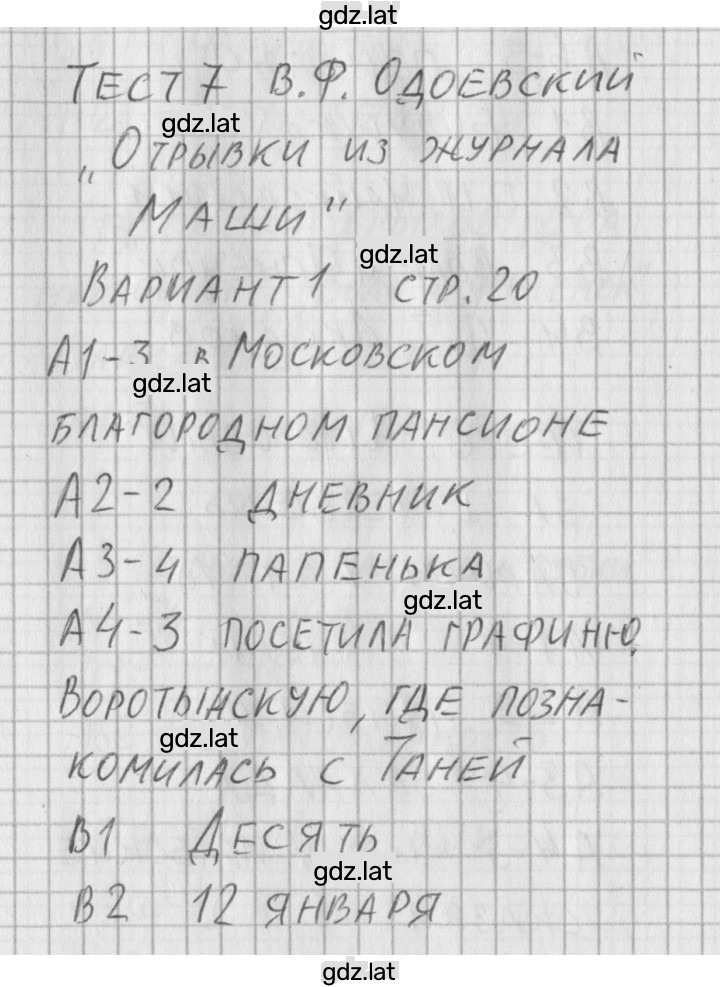 gdz.lat
Тест 7 В.Ф. Одоевский
gdz.lat
„Отрывки из журнала
Маши"
gdz.lat
Вариант 1 стр. 20
А1-3 в Московском
gdz.lat
благородном пансионе
А2-2 дневник
А3-4 папенька
gdz.lat
А4-3 посетила графиню
Воротынскую, где позна-
gdz.lat
комилась с Таней
В1 Десять
gdz.lat
В2 12 января
gdz.lat